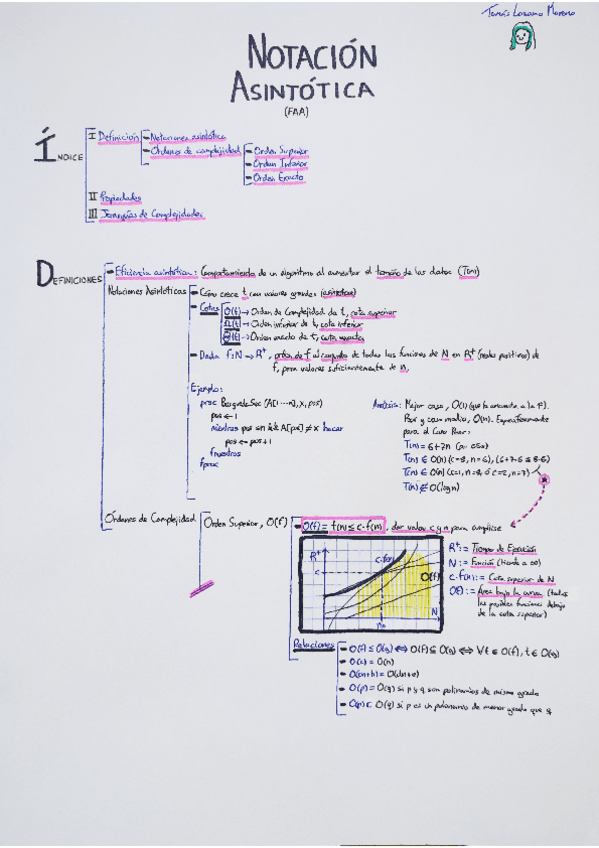 Tomás Lozano Moreno
NOTACIÓN
ASINTÓTICA
(FAA)
ÍNDICE
I Definición
- Notaciones asintótica
- Ordenes de complejidad
- Orden Superior
- Orden Inferior
- Orden Exacto
II Propiedades
III Jerarquías de Complejidades
DEFINICIONES
- Eficiencia asintótica: Comportamiento de un algoritmo al aumentar el tamaño de los datos (T(n))
Notaciones Asintóticas
- Cómo crece t, con valores grandes (asintótica)
- Cotas
O(t) → Orden de Complejidad de t, cota superior
Ω(t) → Orden inferior de t, cota inferior
Θ(t) → Orden exacto de t, cota exacta
- Dada f: N → R⁺, orden de f al conjunto de todas las funciones de N en R⁺ (reales positivos) de
f, para valores suficientemente de n.
Ejemplo:
proc BusquedaSec (A[1…n], x, pos)
pos ← 1
mientras pos ≤n && A[pos] ≠ x hacer
pos ← pos+1
fmientras
fproc
Análisis: Mejor caso, O(1) (que lo encuentre a la 1ª).
Peor y caso medio, O(n). Específicamente
para el Caso Peor:
T(n) = 6+7n
T(n) ∈ O(n) (c=8, n=6), (6+7·6 ≤ 8·6)
T(n) ∈ O(n)
T(n) ∉ O(log n)
Órdenes de Complejidad
Orden Superior, O(f)
- O(f) = f(n) ≤ c·f(n), dar valor c y n para cumplirse
R⁺
c
c·f(n)
O(f)
N
n₀
R⁺:= Tiempo de Ejecución
N:= Función (tiende a ∞)
c·f(n):= Cota superior de N
O(f):= Área bajo la curva (todas
las posibles funciones debajo
de la cota superior)
Relaciones
- O(f) ≤ O(g) ⟺ O(f) ⊆ O(g) ⟺ ∀t ∈ O(f), t ∈ O(g)
- O(n) = O(n)
- O(p) = O(q) si p y q son polinomios de mismo grado
- O(p) ⊂ O(q) si p es un polinomio de menor grado que q